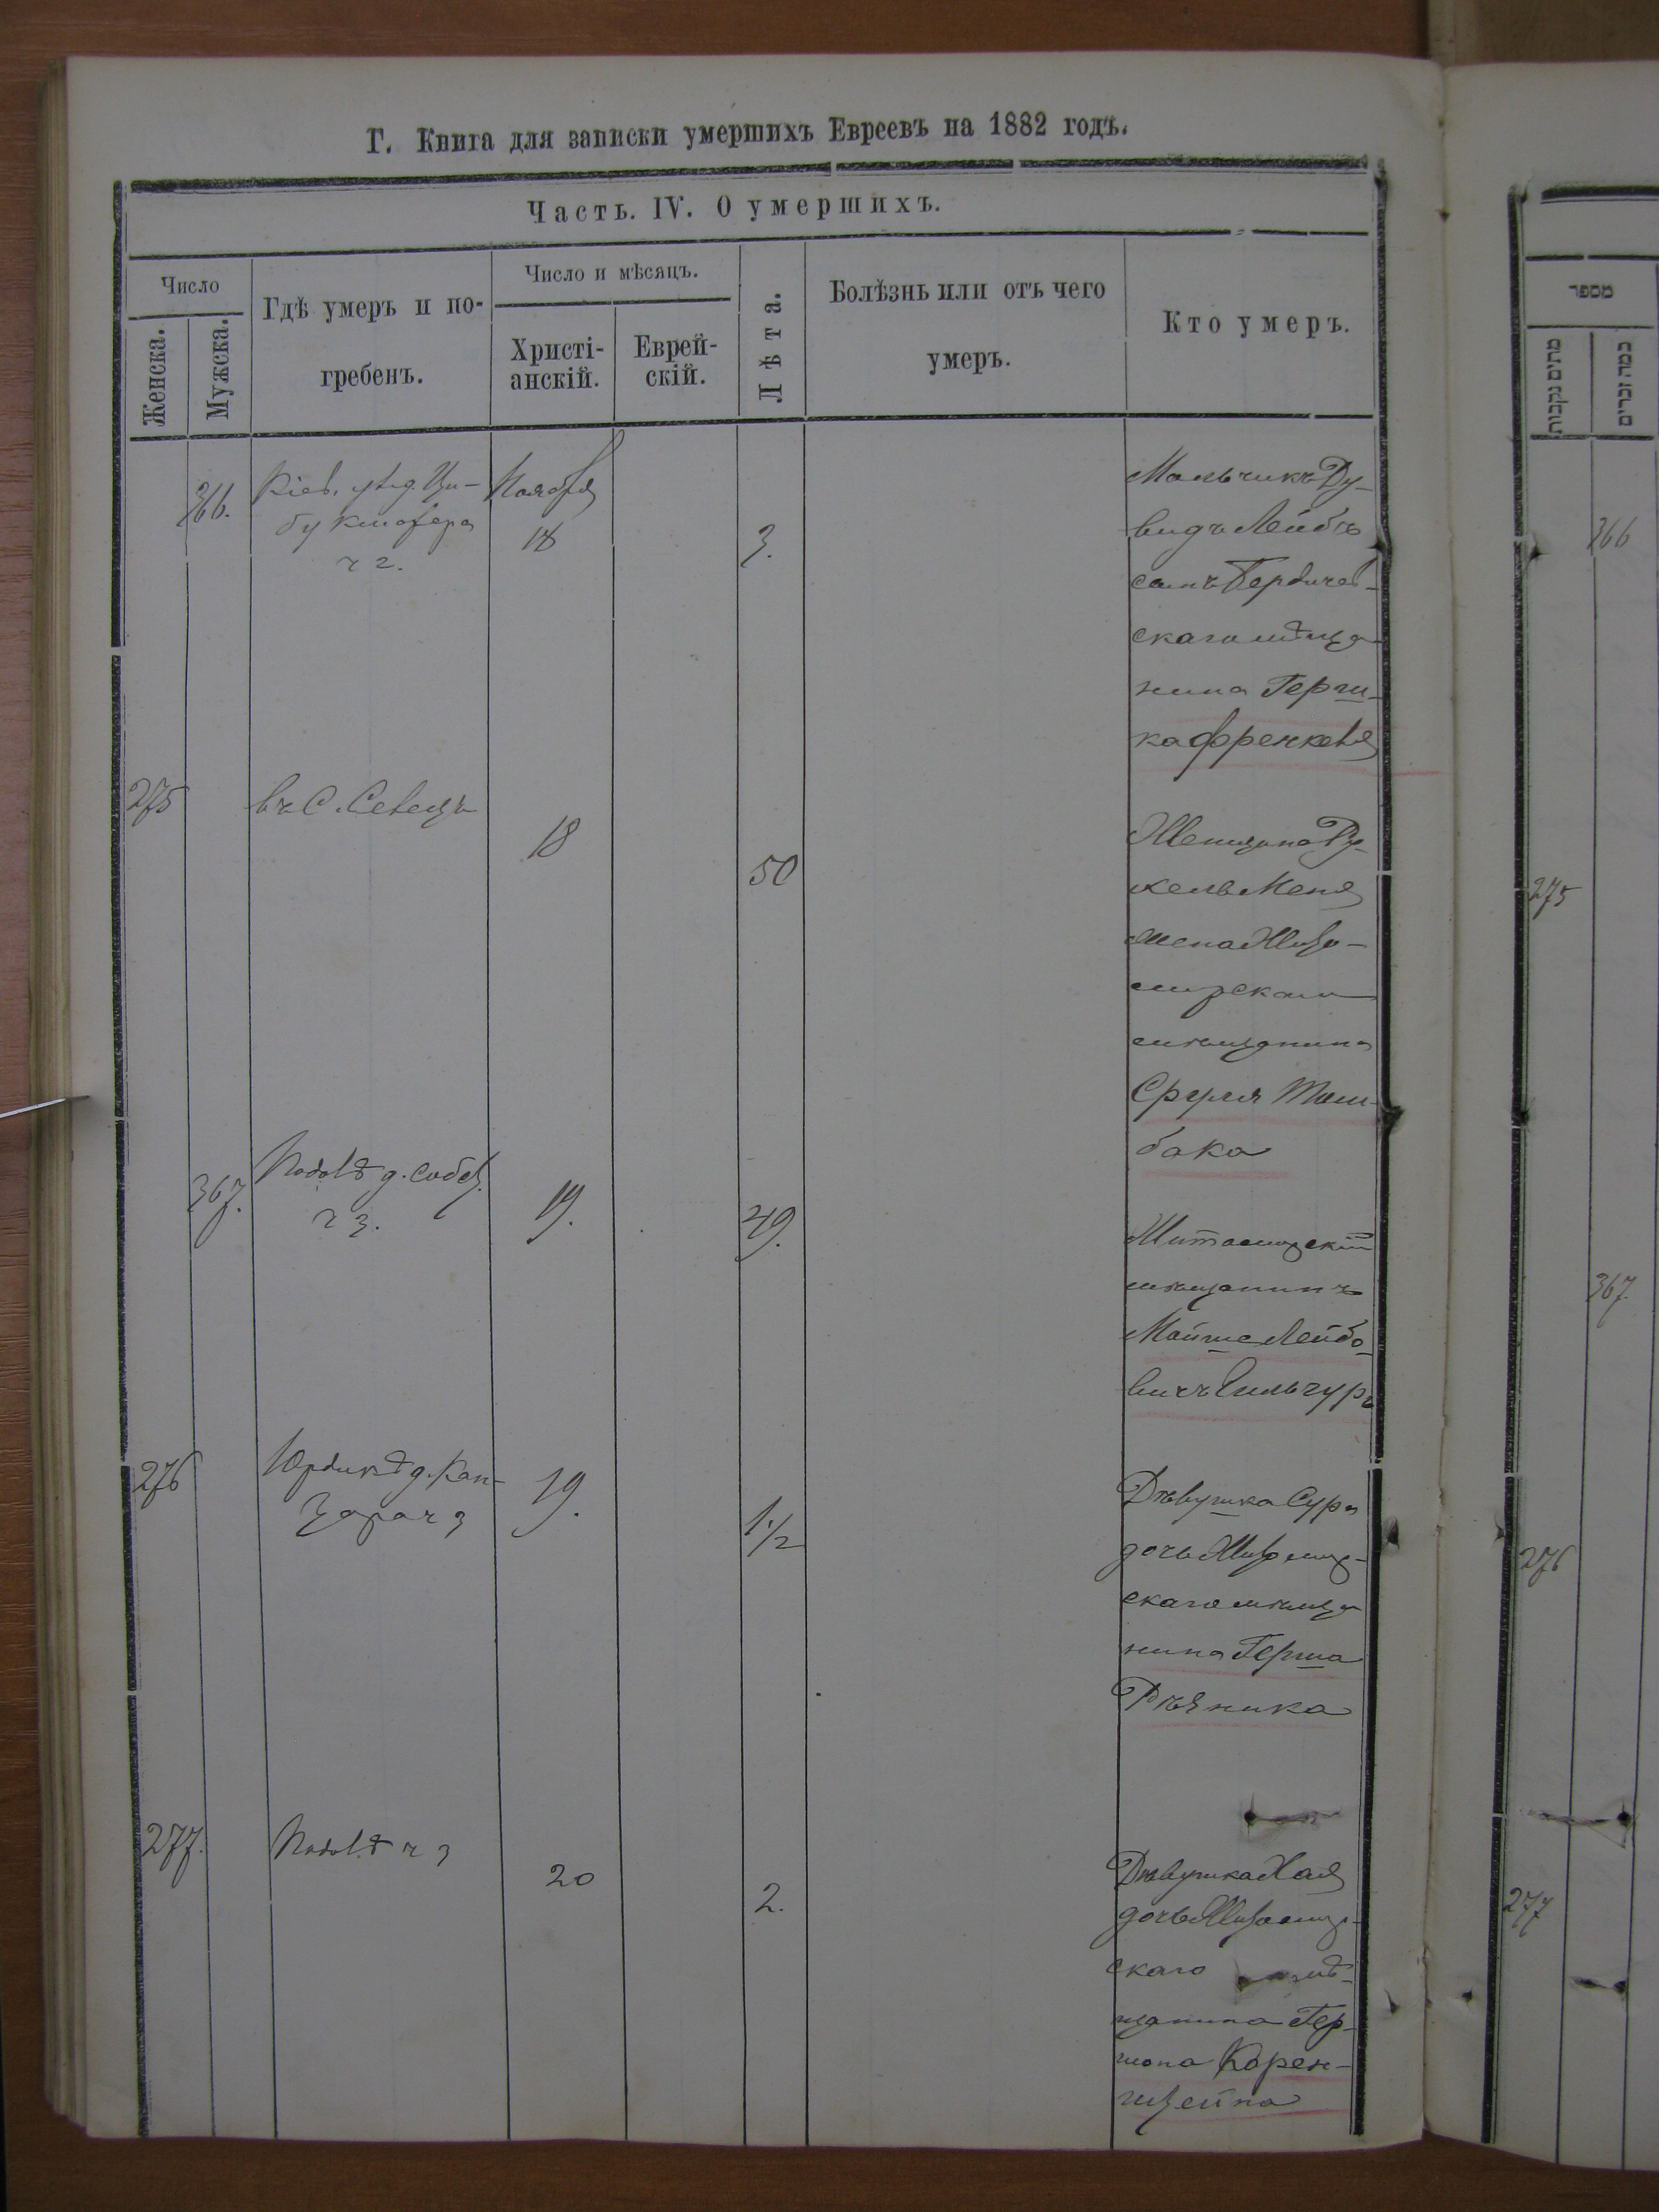 Г. Книга для записки умершихъ Евреевъ на 1882 годъ.
Часть. IV. О умершихъ.
Число
Женска.
Мужска.
Гдѣ умеръ и по-
гребенъ.
Число и мѣсяцъ.
Христі-
анскій.
Еврей-
скій.
Лѣта.
Болѣзнь или отъ чего
умеръ.
Кто умеръ.
366.
ч 2.
Ноября
18
3.
Мальчикъ Ду-
видъ Лейбъ
сынъ Бердичев-
скаго мѣща-
нина Герш-
ка Френкеля
275
въ С.
18
50
Женщина Ру-
хель Меня
жена Жито-
мирскаго
мѣщанина
Сруля
бака
367.
д. собст.
ч 3.
19.
49.
Житомирскій
мѣщанинъ
Мойше Лейбо-
вичъ
276
д. Кан-
цара ч 3
19.
1 1/2
Дѣвушка Сура
дочь Житомир-
скаго мѣща
нина Герша
Рѣзника
277.
ч 3
20
2.
Дѣвушка Хая
дочь Житомир-
скаго мѣ-
щанина Гер-
шона Корен-
штейна
מספר
מתים נקבות
כמה זכרים
366
275
367.
276
277